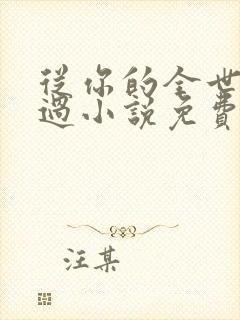 從你的全世
過小說免費
汪某